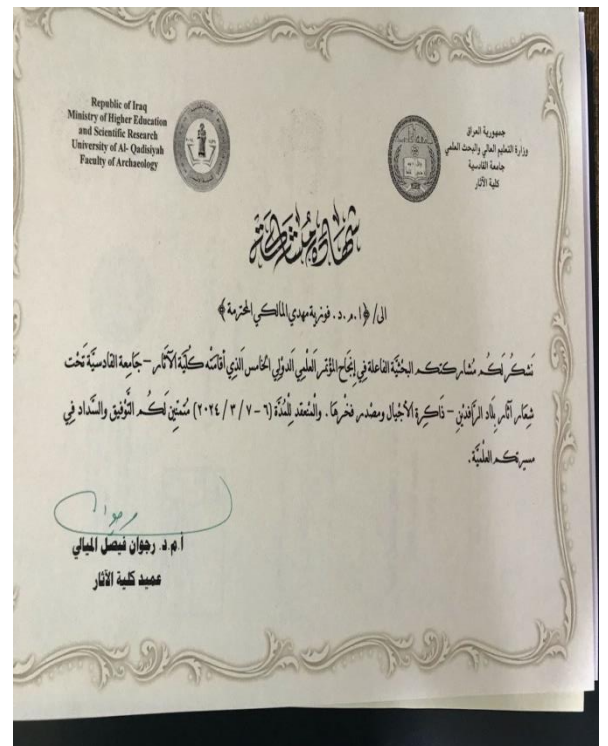 Republic of Iraq
Ministry of Higher Education
and Scientific Research
University of Al- Qadisiyah
Faculty of Archaeology
جمهورية العراق
وزارة التعليم العالي والبحث العلمي
جامعة القادسية
كلية الآثار
شهادة مشاركة
الى/ ﴿ا.م.د. فوزية مهدي المالكي المحترمة﴾
نَشكُر لَكُم مُشاركتكم البحثيَّة الفاعلة في إنجاح المؤتمر العلمي الدولي الخامس الذي أقامته كلية الآثار – جَامِعة القادسيَّة تَحْت
شِعَار آثار بِلَاد الرَّافدَيْن – ذَاكرة الأجْيال ومصْدر فخْرهَا. والمنعقد لِلمُدَّة (٦ - ٧ / ٣ / ٢٠٢٤) مُتمنِّين لَكُم التَّوْفيق والسَّداد فِي
مسيرتكم العلْميَّة.
أ م. د. رجوان فيصل الميالي
عميد كلية الآثار